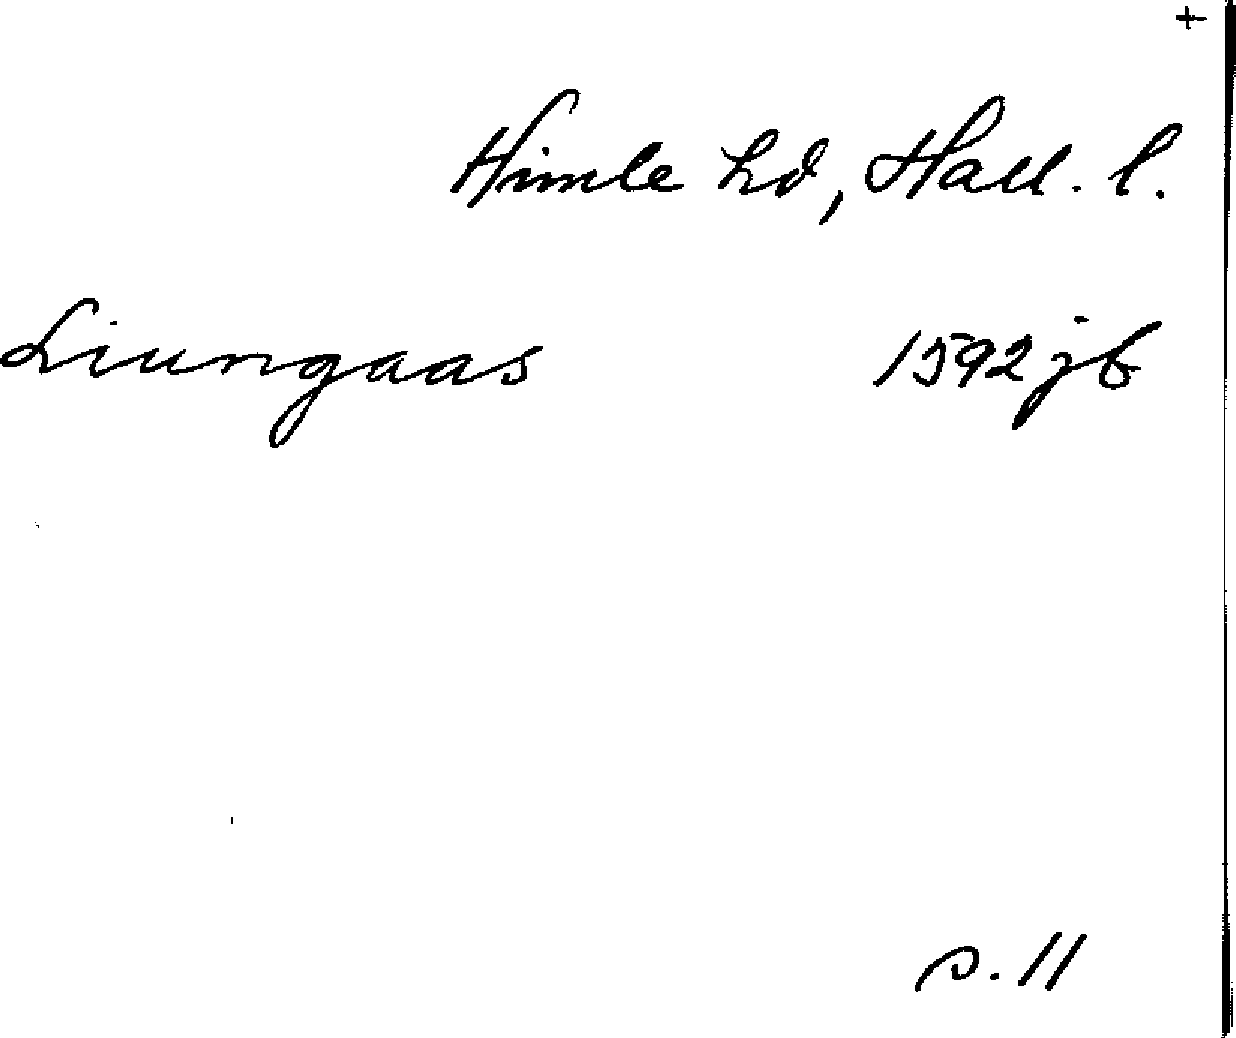 +
Himle hd, Hall. l.
Liungaas 1592 jb
s. 11